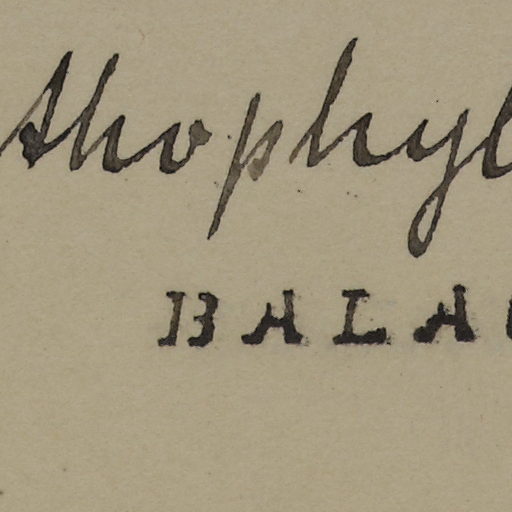 thophyl
BALA